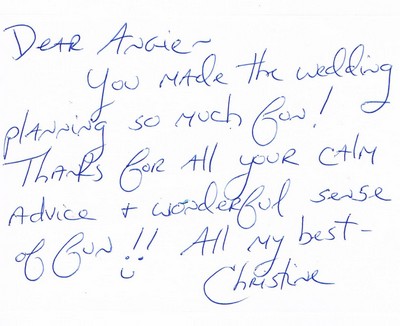 Dear Angie~
You made the wedding
planning so much fun!
Thanks for all your calm
advice + wonderful sense
of fun!! All my best-
Christine